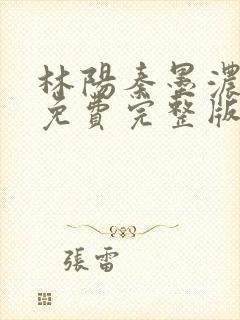 林陽秦墨濃
免費完整版
張雷